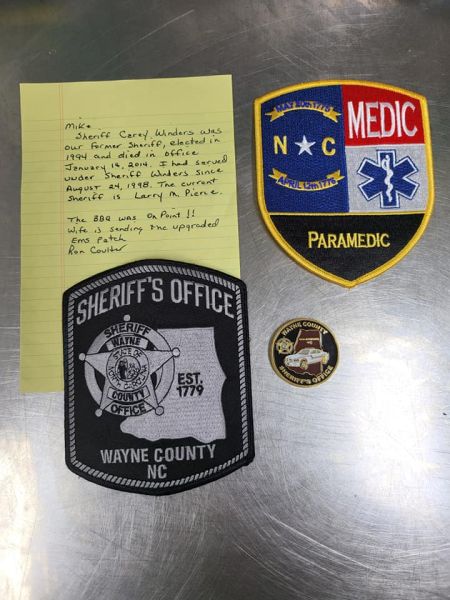 Mike
Sheriff Carey Winders was
our former Sheriff, elected in
1994 and died in office
January 14, 2014. I had served
under Sheriff Winders since
August 24, 1998. The current
Sheriff is Larry M. Pierce.
The BBQ was On Point!!
Wife is sending the upgraded
Ems Patch
Ron Coulter
MAY 20th 1775
N C
APRIL 12th 1776
MEDIC
PARAMEDIC
SHERIFF'S OFFICE
SHERIFF
WAYNE
STATE OF
COUNTY
OFFICE
EST.
1779
WAYNE COUNTY
NC
WAYNE COUNTY
SHERIFF'S OFFICE